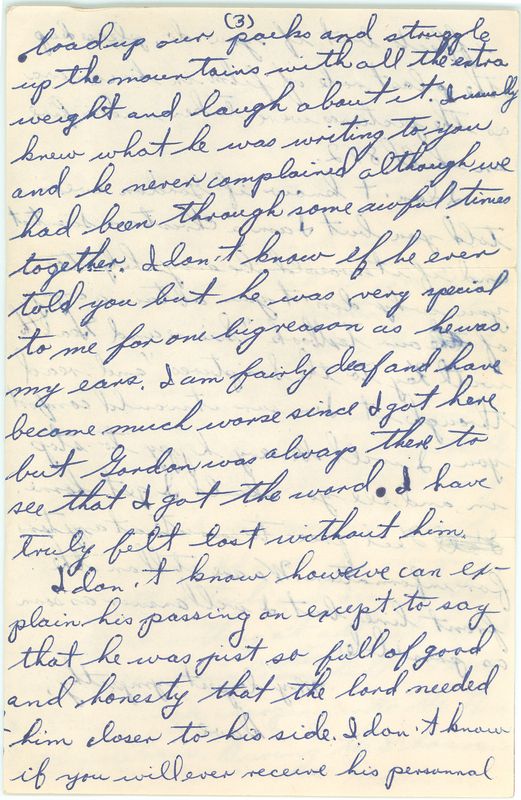 (3)
load up our packs and struggle
up the mountains with all the extra
weight and laugh about it. I usually
knew what he was writing to you
and he never complained although we
had been through some awful times
together. I don't know if he ever
told you but he was very special
to me for one big reason as he was
my ears. I am fairly deaf and have
become much worse since I got here
but Gordon was always there to
see that I got the word. I have
truly felt lost without him.
I don't know how we can ex-
plain his passing on except to say
that he was just so full of good
and honesty that the lord needed
him closer to his side. I don't know
if you will ever receive his personnal